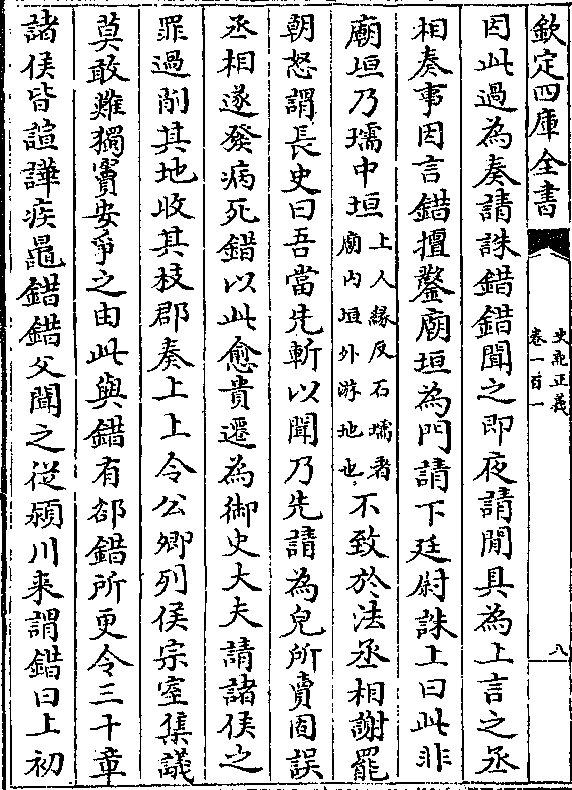 欽定四庫全書
史記正義
卷一百一
八
因此過為奏請誅錯錯聞之即夜請間具為上言之丞
相奏事因言錯擅鑿廟垣為門請下廷尉誅上曰此非
廟垣乃壖中垣
上人緣反石壖者
廟內垣外游地也
不致於法丞相謝罷
朝怒謂長史曰吾當先斬以聞乃先請為兒所賣固誤
丞相遂發病死錯以此愈貴遷為御史大夫請諸侯之
罪過削其地收其枝郡奏上上令公卿列侯宗室集議
莫敢難獨竇安爭之由此與錯有郤錯所更令三十章
諸侯皆諠譁疾鼂錯錯父聞之從潁川来謂錯曰上初